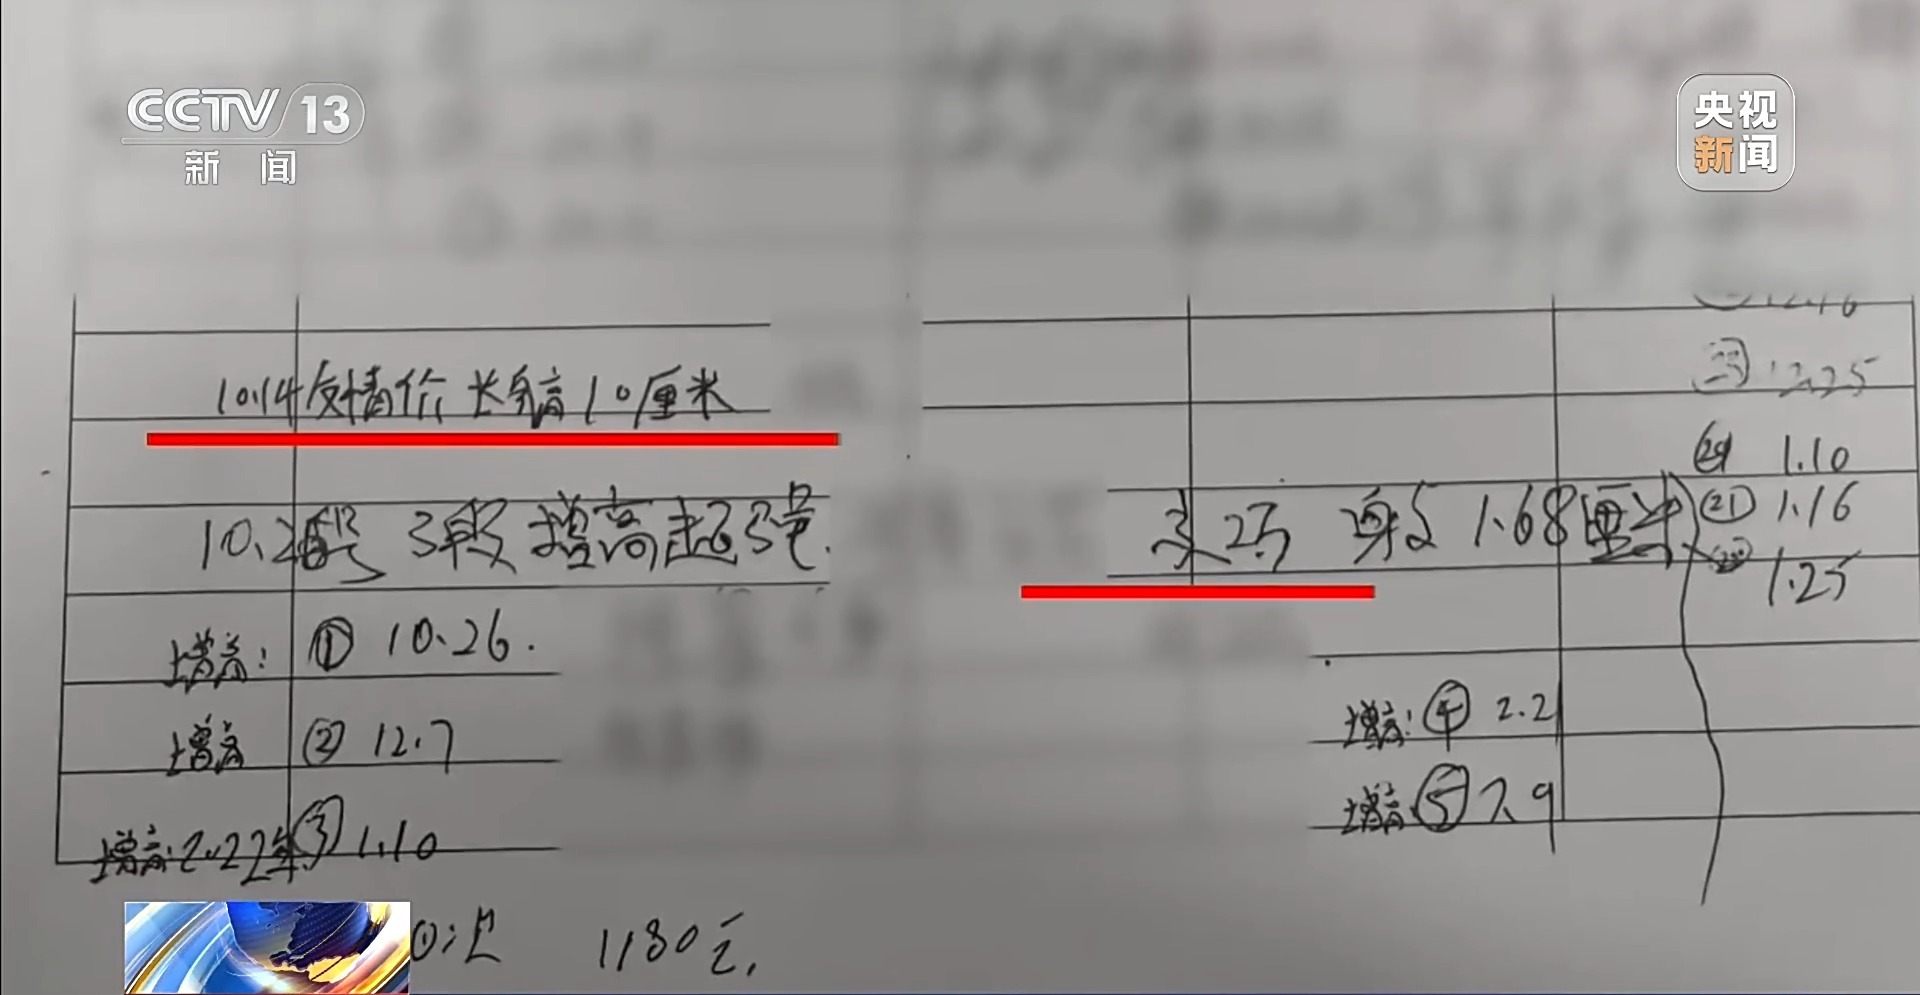 CCTV 13
新闻
央视
新闻
12.25
10.14友情价 长身高10厘米
1.10
10.2 3段 增高超强.
身高 1.68厘米
㉑ 1.16
1.25
增高: ① 10.26.
增高 ② 12.7
增高: ④ 2.2
增高 ⑤ 7.9
增高: 2022年 ③ 1.10
1180元.